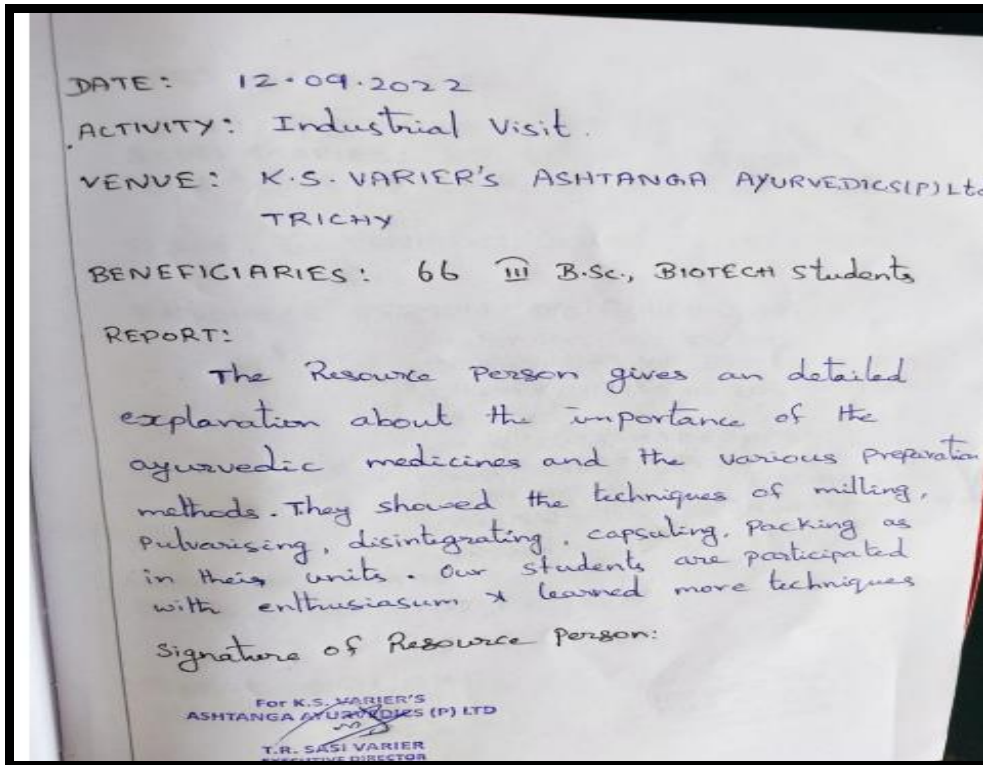 DATE: 12.09.2022
ACTIVITY: Industrial Visit.
VENUE: K.S. VARIER'S ASHTANGA AYURVEDICS(P) Ltd
TRICHY
BENEFICIARIES: 66 III B.Sc., BIOTECH Students
REPORT:
The Resource Person gives an detailed
explanation about the importance of the
ayurvedic medicines and the various preparation
methods. They showed the techniques of milling,
Pulvarising, disintegrating, capsuling, Packing as
in their units. Our students are participated
with enthusiasum & learned more techniques
Signature of Resource Person:
For K.S. VARIER'S
ASHTANGA AYURVEDICS (P) LTD
T.R. SASI VARIER
EXECUTIVE DIRECTOR